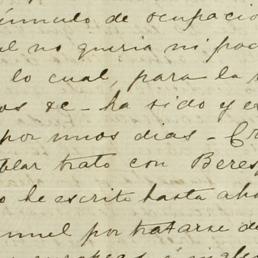 cúmulo de ocupacio
l no queria ni pod
lo cual, para la
os &c - ha sido y es
por unos dias - Cr
blar trato con Beres
o he escrito hasta aho
nuel por tratarse de